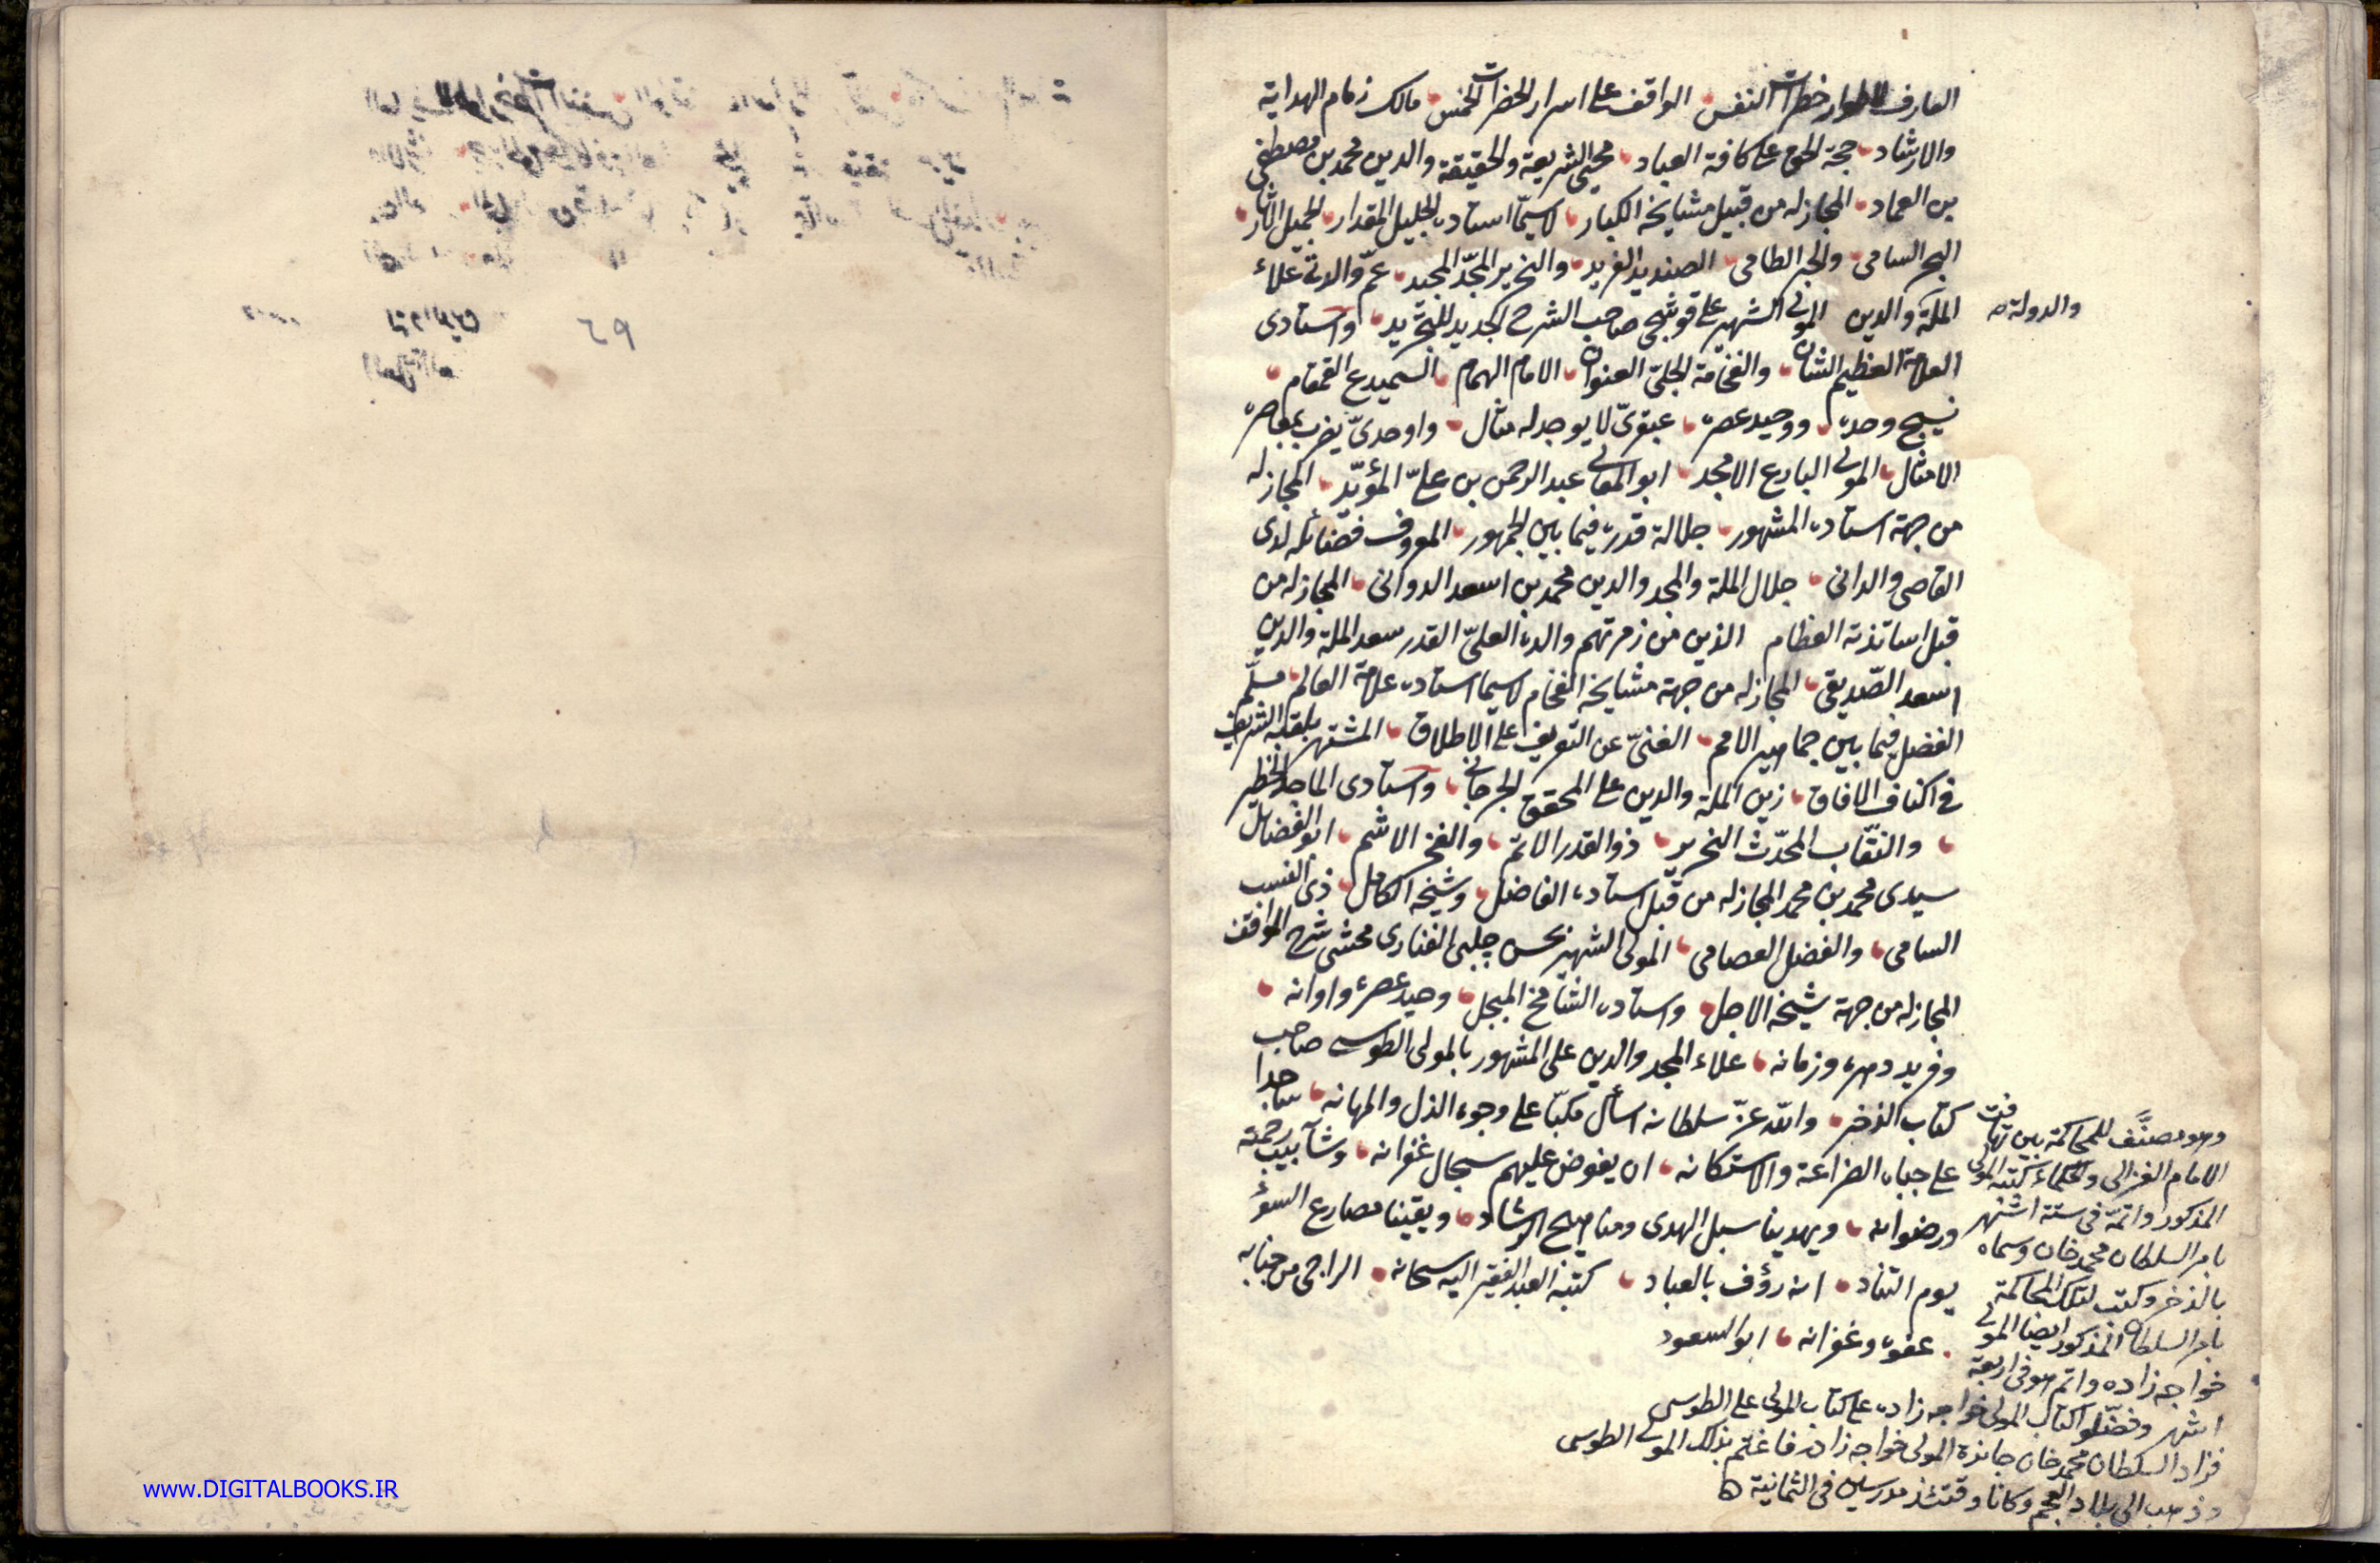 العارف لاطوار خطرات النفس الواقف على اسرار الحضرات الخمس مالك زمام الهداية
والارشاد حجة الحق على كافة العباد محيى الشريعة والحقيقة والدين محمد بن مصطفى
بن العماد المجاز له من قبيل مشايخه الكبار لاسيما استاده الجليل المقدار الجميل الاثار
البحر السامى والحبر الطامى الصنديد الفريد والنحرير المجد المجيد عم والدته علاء
الملة والدين المولى الشهير على قوشجى صاحب الشرح الجديد للتجريد واستادى
والدولة صح
العلامة العظيم الشان والفخامة الجلى العنوان الامام الهمام السميدع القمقام
نسيج وحده ووحيد عصره عبقرى لا يوجد له مثال واوحدى يضرب بمفاخره
الامثال المولى البارع الامجد ابو المعالى عبد الرحمن بن على المؤيد المجاز له
من جهة استاده المشهور جلالة قدره فيما بين الجمهور المعروف فضائله لدى
القاصى والدانى جلال الملة والمجد والدين محمد بن اسعد الدوانى المجاز له من
قبل اساتذته العظام الذين من زمرتهم والده العلى القدر سعد الملة والدين
اسعد الصديقى المجاز له من جهة مشايخه الفخام لاسيما استاده علامة العالم مسلم
الفضل فيما بين جماهير الامم الغنى عن التعريف على الاطلاق المشتهر بلقبه الشريف
فى اكناف الافاق زين الملة والدين على المحقق الجرجانى واستادى الماجد الخطير
والنقاب المحدث النحرير ذو القدر الاتم والفخر الاشم ابو الفضائل
سيدى محمد بن محمد المجاز له من قبل استاده الفاضل وشيخه الكامل ذى النسب
السامى والفضل العصامى المولى الشهير بحسن چلبى الفنارى محشى شرح المواقف
المجاز له من جهة شيخه الاجل واستاده الشامخ المبجل وحيد عصره واوانه
وفريد دهره وزمانه علاء المجد والدين على المشهور بالمولى الطوسى صاحب
كتاب الذخر والله عز سلطانه اسأل مكبا على وجوه الذل والمهانه ساجدا
على جباه الضراعة والاستكانه ان يفوض عليهم سجال غفرانه وشآبيب رحمته
ورضوانه ويهدينا سبل الهدى ومناهج الرشاد ويقينا مصارع السوء
يوم التناد انه رؤف بالعباد كتبه العبد الفقير اليه سبحانه الراجى من جنابه
عفوه وغفرانه ابو السعود
وهو مصنف للمحاكمة بين تهافت
الامام الغزالى والحكماء كتبه المولى
المذكور واتمه فى ستة اشهر
بامر السلطان محمد خان وسماه
بالذخر وكتب لتلك المحاكمة
بامر السلطان المذكور ايضا المولى
خواجه زاده واتم هو فى اربعة
اشهر وفضلوا كتاب المولى خواجه زاده على كتاب المولى على الطوسى
فزاد السلطان محمد خان جائزة المولى خواجه زاده فاغتم بذلك المولى الطوسى
وذهب الى بلاد العجم وكانا وقتئذ مدرسين فى الثمانية
٦٩
www.DIGITALBOOKS.IR